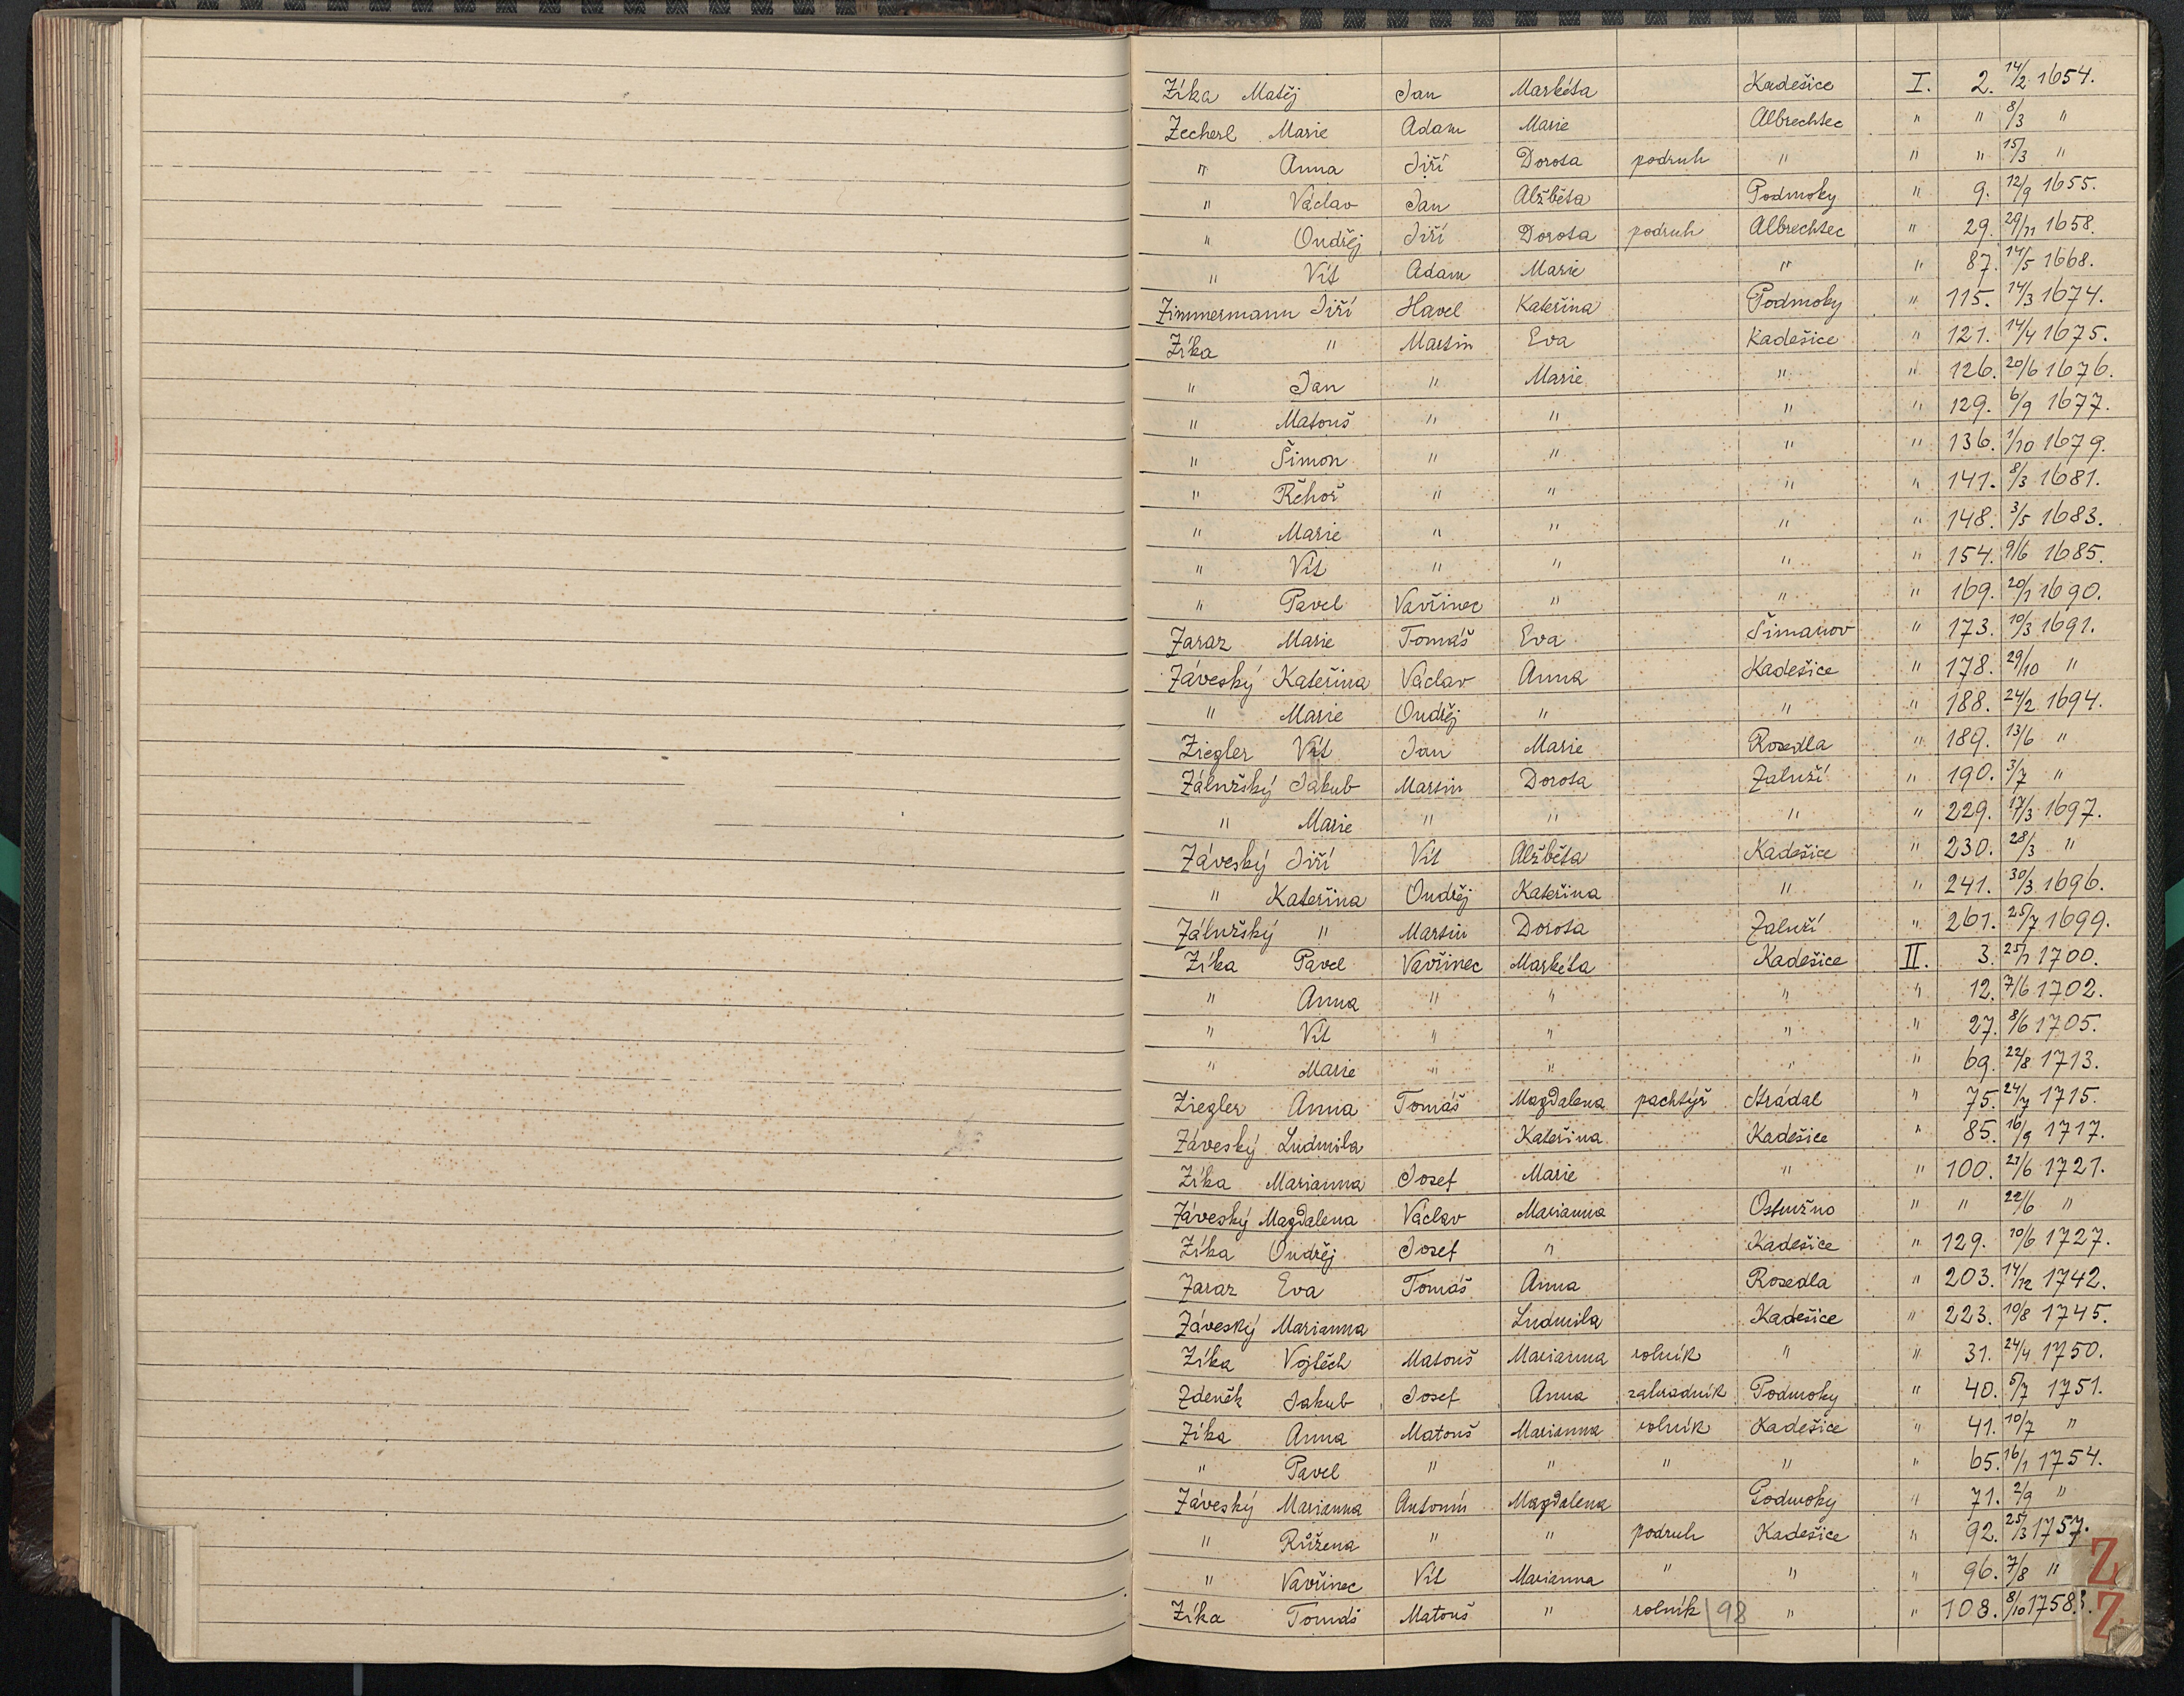 Zíka Matěj Jan Markéta Kadešice I. 2. 14/2 1654.
Zecherl Marie Adam Marie Albrechtec " " 8/3 "
" Anna Jiří Dorota podruh " " " 15/3 "
" Václav Jan Alžběta Podmoky " 9. 12/9 1655.
" Ondřej Jiří Dorota podruh Albrechtec " 29. 29/11 1658.
" Vít Adam Marie " " 87. 14/5 1668.
Zimmermann Jiří Havel Kateřina Podmoky " 115. 14/3 1674.
Zíka " Martin Eva Kadešice " 121. 14/4 1675.
" Jan " Marie " " 126. 20/6 1676.
" Matouš " " " " 129. 6/9 1677.
" Šimon " " " " 136. 1/10 1679.
" Řehoř " " " " 141. 8/3 1681.
" Marie " " " " 148. 3/5 1683.
" Vít " " " " 154. 9/6 1685.
" Pavel Vavřinec " " " 169. 20/1 1690.
Zaraz Marie Tomáš Eva Šimanov " 173. 10/3 1691.
Záveský Kateřina Václav Anna Kadešice " 178. 29/10 "
" Marie Ondřej " " " 188. 24/2 1694.
Ziegler Vít Jan Marie Rosedla " 189. 13/6 "
Zálužský Jakub Martin Dorota Zaluží " 190. 3/7 "
" Marie " " " " 229. 17/3 1697.
Záveský Jiří Vít Alžběta Kadešice " 230. 28/3 "
" Kateřina Ondřej Kateřina " " 241. 30/3 1696.
Zálužský " Martin Dorota Zaluží " 261. 25/7 1699.
Zíka Pavel Vavřinec Markéta Kadešice II. 3. 25/1 1700.
" Anna " " " " 12. 7/6 1702.
" Vít " " " " 27. 8/6 1705.
" Marie " " " " 69. 22/8 1713.
Ziegler Anna Tomáš Magdalena pachtýř Strádal " 75. 24/7 1715.
Záveský Ludmila Kateřina Kadešice " 85. 16/9 1717.
Zíka Marianna Josef Marie " " 100. 21/6 1721.
Záveský Magdalena Václav Marianna Ostružno " " 22/6 "
Zíka Ondřej Josef " Kadešice " 129. 10/6 1727.
Zaraz Eva Tomáš Anna Rosedla " 203. 14/12 1742.
Záveský Marianna Ludmila Kadešice " 223. 10/8 1745.
Zíka Vojtěch Matouš Marianna rolník " " 31. 24/4 1750.
Zdeněk Jakub Josef Anna zahradník Podmoky " 40. 5/7 1751.
Zíka Anna Matouš Marianna rolník Kadešice " 41. 10/7 "
" Pavel " " " " " 65. 16/1 1754.
Záveský Marianna Antonín Magdalena Podmoky " 71. 2/9 "
" Růžena " " podruh Kadešice " 92. 25/3 1757.
" Vavřinec Vít Marianna " " " 96. 7/8 "
Zíka Tomáš Matouš " rolník 98 " " 108. 8/10 1758.
Z
Z